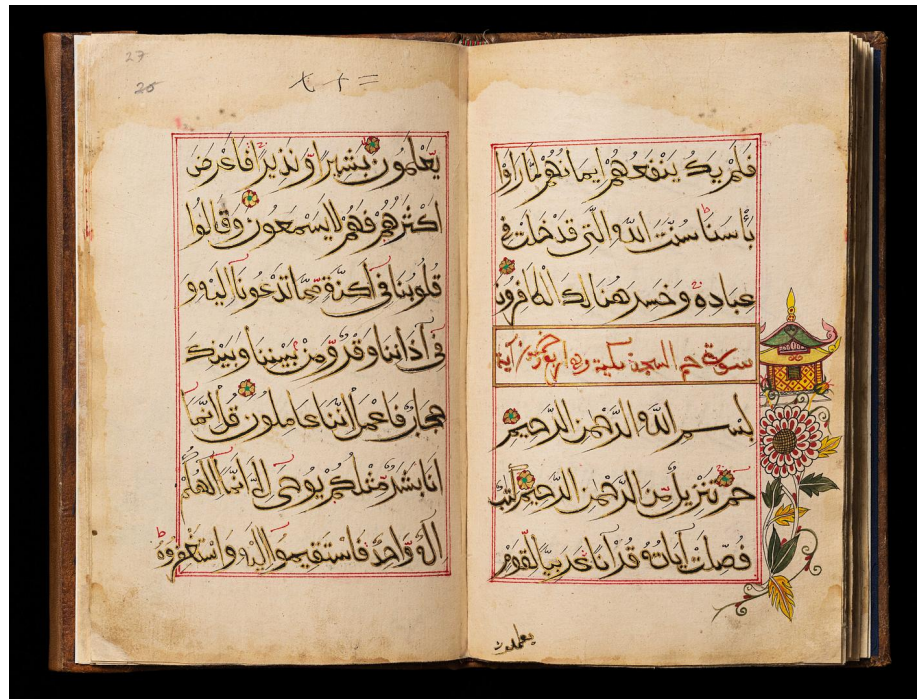 فَلَمْ يَكُ يَنْفَعُهُمْ اِيمَانُهُمْ لَمَّا رَاَوْا
بَأْسَنَا سُنَّتَ اللّٰهِ الَّتِى قَدْ خَلَتْ فِى
عِبَادِهٖ وَخَسِرَ هُنَالِكَ الْكَافِرُونَ
سورة حم السجدة مكية وهى اربع وخمسون آية
بِسْمِ اللّٰهِ الرَّحْمٰنِ الرَّحِيمِ
حم تَنْزِيلٌ مِنَ الرَّحْمٰنِ الرَّحِيمِ كِتٰبٌ
فُصِّلَتْ آيَاتُهُ قُرْآنًا عَرَبِيًّا لِقَوْمٍ
يعلمون
27
25
يَعْلَمُونَ بَشِيرًا وَنَذِيرًا فَاَعْرَضَ
اَكْثَرُهُمْ فَهُمْ لَا يَسْمَعُونَ وَقَالُوا
قُلُوبُنَا فِى اَكِنَّةٍ مِمَّا تَدْعُونَا اِلَيْهِ وَ
فِى آذَانِنَا وَقْرٌ وَمِنْ بَيْنِنَا وَبَيْنِكَ
حِجَابٌ فَاعْمَلْ اِنَّنَا عَامِلُونَ قُلْ اِنَّمَا
اَنَا بَشَرٌ مِثْلُكُمْ يُوحٰى اِلَىَّ اَنَّمَا اِلٰهُكُمْ
اِلٰهٌ وَاحِدٌ فَاسْتَقِيمُوا اِلَيْهِ وَاسْتَغْفِرُوهُ